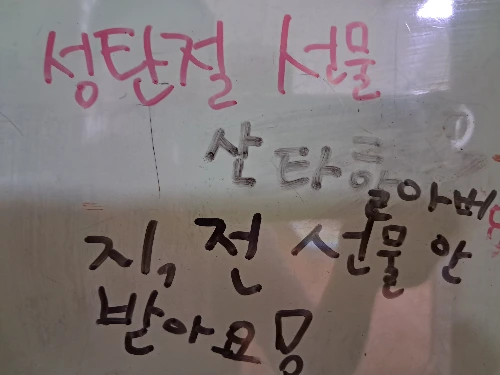 성탄절 선물
산타할아버
지, 전 선물 안
받아요!